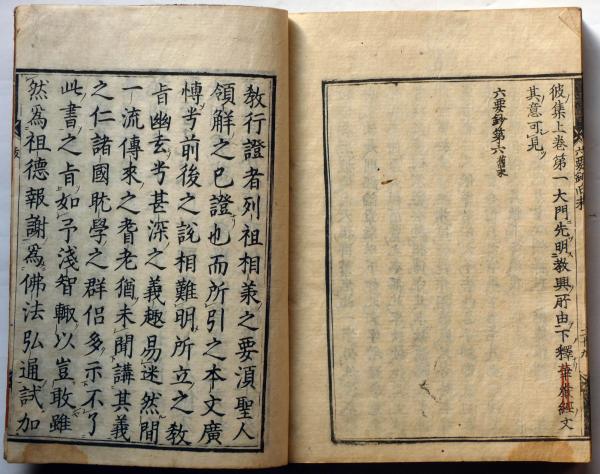 彼集上巻第一大門先明教興所由下釋華嚴經文
其意可見
六要鈔第六舊末
教行證者列祖相兼之要須聖人
領解之已證也而所引之本文廣
博兮前後之説相難明所立之教
旨幽玄兮甚深之義趣易迷然間
一流傳來之耆老猶未聞講其義
之仁諸國耽學之群侶多示不了
此書之旨如予淺智輙以豈敢雖
然爲祖德報謝爲佛法弘通試加